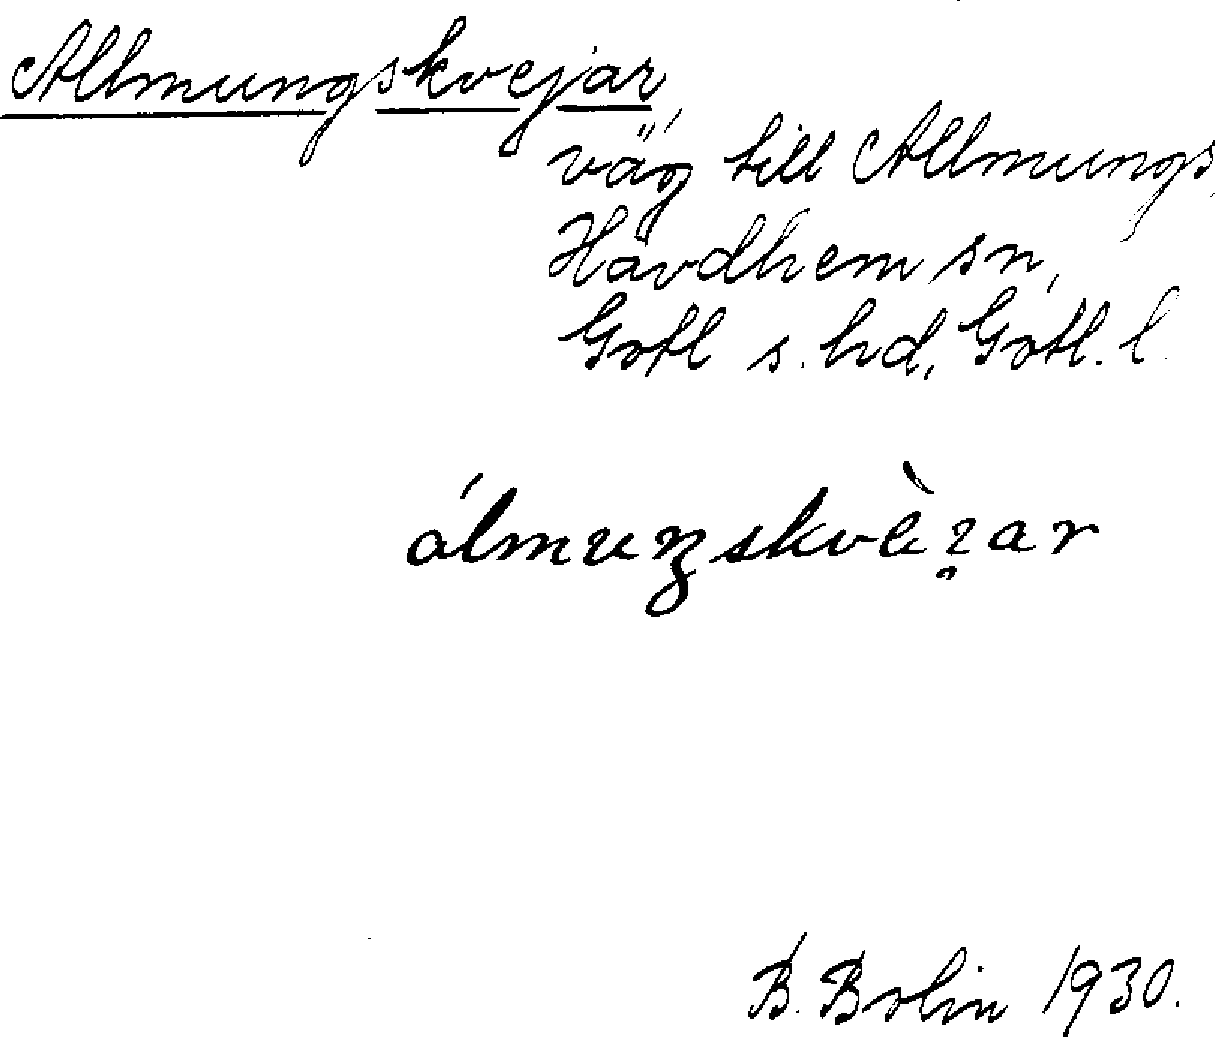 Allmungskvejar,
väg till Allmungs,
Havdhem sn,
Gotl s. hd, Gotl. l.
álmuŋskvὲ̀ıar
B. Bolin 1930.